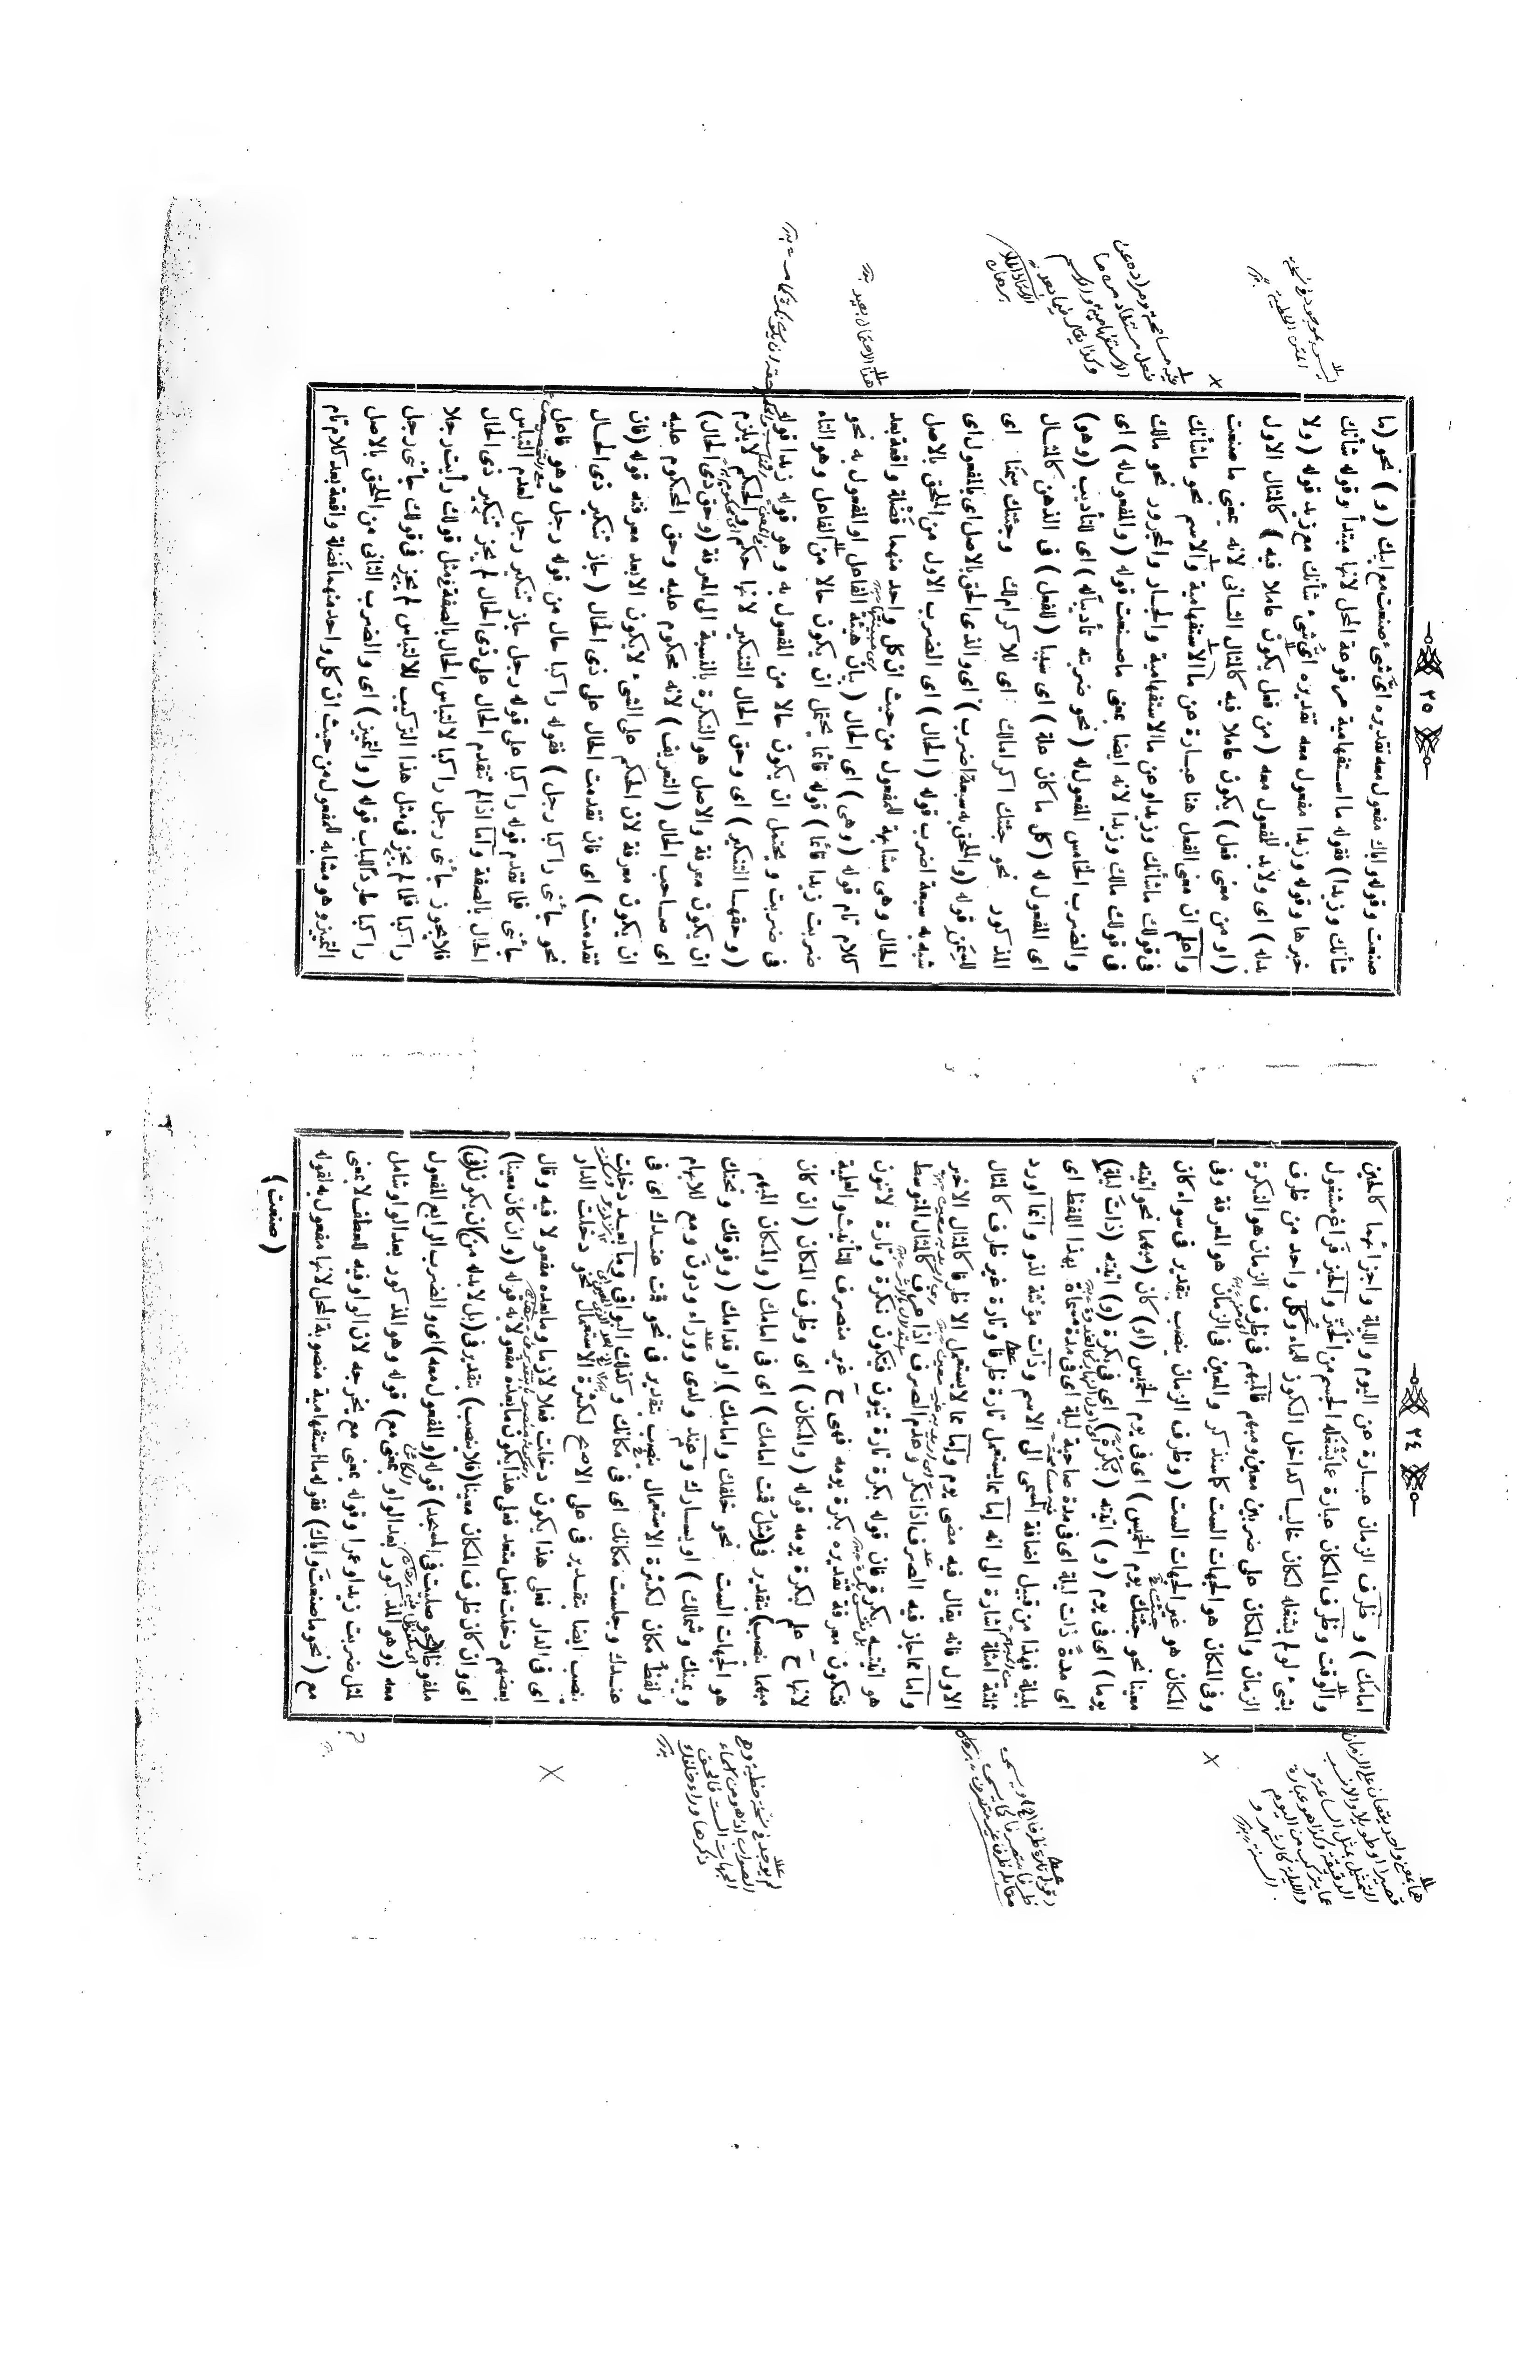 ٢٤
امامك ) و ظرف الزمان عبارة عن اليوم والليلة واجزائهما كالحين
والوقت وظرف المكان عبارة عما يشغله الجسم من الحيز والحيز فراغ مشغول
بشئ لو لم يشغله لكان خاليا كداخل الكوز للماء وكل واحد من ظرف
الزمان والمكان على ضربين معين ومبهم فالمبهم فى ظرف الزمان هو النكرة
وفى المكان هو الجهات الست كما سنذكر والمعين فى الزمان هو المعرفة وفى
المكان هو غير الجهات الست ( وظرف الزمان ينصب بتقدير فى سواء كان
معينا نحو جئتك يوم الخميس ) اى فى يوم الخميس ( او ) كان ( مبهما نحو اتيته
يوما ) اى فى يوم ( و ) اتيته ( بكرة ) اى فى بكرة ( و ) اتيته ( ذات ليلة )
اى مدة ذات ليلة اى فى مدة صاحبة ليلة اى فى مدة مسماة بهذا اللفظ اى
بليلة فهذا من قبيل اضافة المسمى الى الاسم وذات مؤنثة لذو وانما اورد
ثلثة امثلة اشارة الى انه اما مما يستعمل تارة ظرفا وتارة غير ظرف كالمثال
الاول فانه يقال فيه مضى يوم واما مما لا يستعمل الا ظرفا كالمثال الاخير
واما مما جاز فيه الصرف اذا نكر وعدم الصرف اذا عرف كالمثال المتوسط
هو اتيته بكرة فان قوله بكرة تارة ينون فتكون نكرة وتارة لا تنون
فتكون معرفة تقديره بكرة يومه فهى ح غير منصرف للتأنيث والعلمية
لانها ح علم لبكرة يومه قوله ( والمكان ) اى وظرف المكان ( ان كان
مبهما ينصب ) بتقدير فى ( مثل قمت امامك ) اى فى امامك ( والمكان المبهم
هو الجهات الست نحو خلفك وامامك ) او قدامك ( وفوقك وتحتك
ويمينك وشمالك ) او يسارك وعند ولدى ووراء ودون ومع للابهام
ولفظ مكان لكثرة الاستعمال ينصب بتقدير فى نحو قمت عندك اى فى
عندك وجلست مكانك اى فى مكانك وكذلك البواقى وما بعد دخلت
ينصب ايضا بتقدير فى على الاصح لكثرة الاستعمال نحو دخلت الدار
اى فى الدار فعلى هذا يكون دخلت فعلا لازما وما بعده مفعولا فيه وقال
بعضهم دخلت فعل متعد فعلى هذا يكون ما بعده مفعولا به قوله ( وان كان معينا )
اى وان كان ظرف المكان معينا ( فلا ينصب ) بتقدير فى ( بل لا بد له من ) ان يكون ( فى )
ملفوظا ( نحو صليت فى المسجد ) قوله ( والمفعول معه ) اى والضرب الرابع المفعول
معه ( وهو المذكور بعد الواو بمعنى مع ) قوله وهو المذكور بعد الواو شامل
لمثل ضربت زيدا وعمرا وقوله بمعنى مع يخرجه لان الواو فيه للعطف لا بمعنى
مع ( نحو ما صنعت واباك ) فقوله ما استفهامية منصوبة المحل لانها مفعول به لقوله
( صنعت )
٢٥
صنعت وقوله واباك مفعول معه تقديره اى شئ صنعت مع ابيك ( و ) نحو ( ما
شأنك وزيدا ) فقوله ما استفهامية مرفوعة المحل لانها مبتدأ وقوله شأنك
خبرها وقوله وزيدا مفعول معه تقديره اى شئ شأنك مع زيد قوله ( ولا
بد له ) اى ولا بد للمفعول معه ( من فعل يكون عاملا فيه ) كالمثال الاول
( او من معنى فعل ) يكون عاملا فيه كالمثال الثانى لانه بمعنى ما صنعت
واعلم ان معنى الفعل هنا عبارة عن ما الاستفهامية والاسم نحو ما شأنك
فى قولك ما شأنك وزيدا وعن ما الاستفهامية والجار والمجرور نحو مالك
فى قولك مالك وزيدا لانه ايضا بمعنى ما صنعت قوله ( والمفعول له ) اى
والضرب الخامس المفعول له ( نحو ضربته تأديبا له ) اى للتأديب ( وهو )
اى المفعول له ( كل ما كان علة ) اى سببا ( للفعل ) فى الذهن كالمثال
المذكور نحو جئتك اكرامالك اى للاكرام لك وجئتك سمنا اى
للسمن قوله ( والملحق به سبعة اضرب ) اى والذى الحق بالاصل اى بالمفعول اى
شبه به سبعة اضرب قوله ( الحال ) اى الضرب الاول من الملحق بالاصل
الحال وهى مشابهة للمفعول من حيث ان كل واحد منهما فضلة واقعة بعد
كلام تام قوله ( وهى ) اى الحال ( بيان هيئة الفاعل او المفعول به نحو
ضربت زيدا قائما ) قوله قائما يحتمل ان يكون حالا من الفاعل وهو التاء
فى ضربت ويحتمل ان يكون حالا من المفعول به وهو قوله زيدا قوله
( وحقها التنكير ) اى وحق الحال التنكير لانها حكم والحكم لا يلزم
ان يكون معرفة والاصل هو النكرة بالنسبة الى المعرفة ( وحق ذى الحال )
اى صاحب الحال ( التعريف ) لانه محكوم عليه وحق المحكوم عليه
ان يكون معرفة لان الحكم على الشئ لا يكون الا بعد معرفته قوله ( فان
تقدمت ) اى فان تقدمت الحال على ذى الحال ( جاز تنكير ذى الحال
نحو جائنى راكبا رجل ) فقوله راكبا حال من قوله رجل وهو فاعل
جائنى فلما تقدم قوله راكبا على قوله رجل جاز تنكير رجل لعدم التباس
الحال بالصفة واما اذا لم تتقدم الحال على ذى الحال لم يجز تنكير ذى الحال
فلا يجوز جائنى رجل راكبا لالتباس الحال بالصفة فى مثل قولك رأيت رجلا
راكبا فلما لم يجز فى مثل هذا التركيب للالتباس لم يجز فى قولك جائنى رجل
راكبا طردا للباب قوله ( والتمييز ) اى والضرب الثانى من الملحق بالاصل
التمييز وهو مشابه للمفعول من حيث ان كل واحد منهما فضلة واقعة بعد كلام تام
هذا الاحتمال بعيد